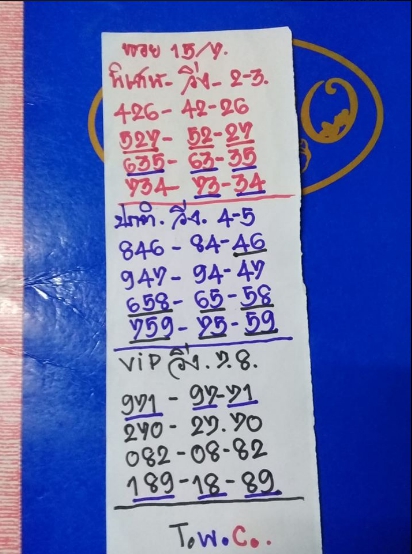 หวย 15/7.
พิเศษ- วิ่ง- 2-3.
426- 42-26
527- 52-27
635- 63-35
734- 73-34
ปกติ. วิ่ง. 4-5
846 - 84-46
947- 94-47
658- 65-58
759- 75-59
ViP วิ่ง. 7.8.
971 - 97-71
270 - 27.70
082-08-82
189-18-89
T.W.C..